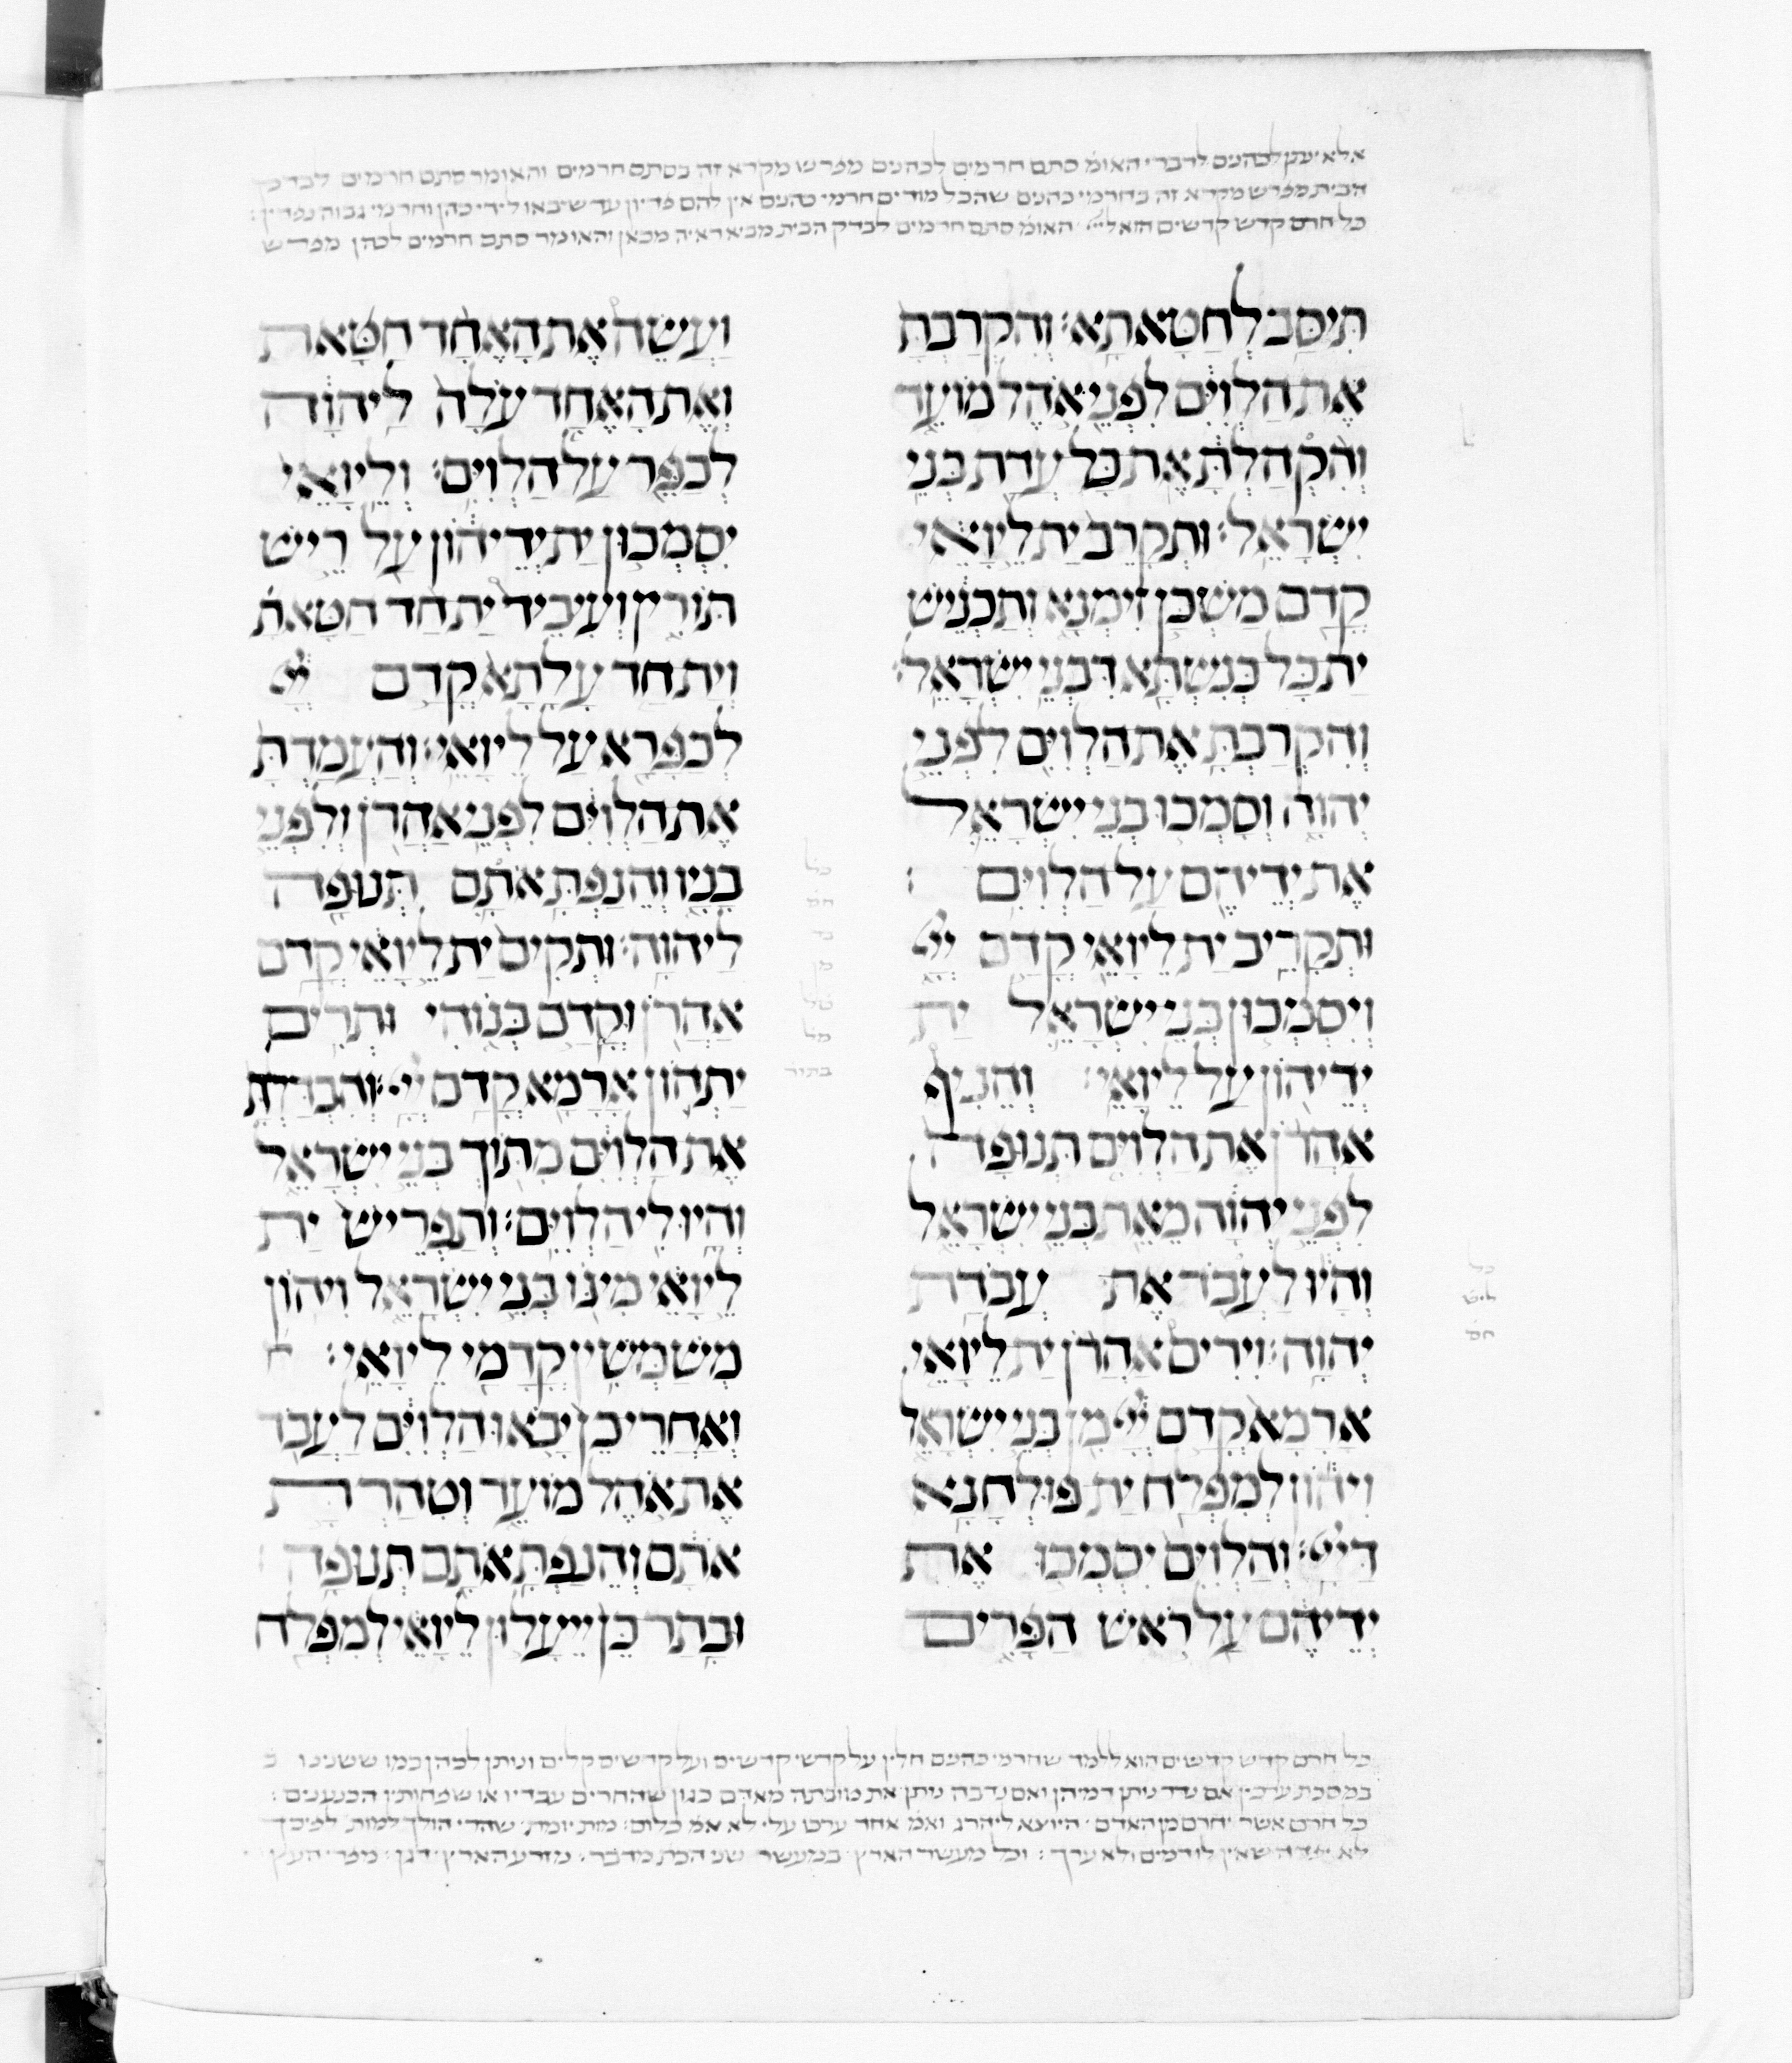 אלא יענין לכהנים לדברי האומ׳ סתם חרמים לכהנים מפרש מקרא זה בסתם חרמים והאומר סתם חרמים לבדק
הבית מפרש מקרא זה בחרמי כהנים שהכל מודים חרמי כהנים אין להם פדיון עד שיבאו לידי כהן וחרמי גבוה נפדין׃
כל חרם קדש קדשים הוא לייי׳ האומ׳ סתם חרמים לבדק הבית מביא ראיה מכאן והאומר סתם חרמים לכהן מפרש
תִּיסַּב לְחַטָּאתָא׃ וְהִקְרַבְתָּ
אֶת הַלְוִיִּם לִפְנֵי אֹהֶל מוֹעֵד
וְהִקְהַלְתָּ אֶת כָּל עֲדַת בְּנֵי
יִשְׂרָאֵל׃ וּתְקָרֵב יַת לֵיוָאֵי
קֳדָם מַשְׁכַּן זִימְנָא וְתַכְנֵישׁ
יָת כָּל כְּנִשְׁתָּא דִּבְנֵי יִשְׂרָאֵל׃
וְהִקְרַבְתָּ אֶת הַלְוִיִּם לִפְנֵי
יְהוָה וְסָמְכוּ בְנֵי יִשְׂרָאֵל
אֶת יְדֵיהֶם עַל הַלְוִיִּם ׃
וּתְקָרֵיב יַת לֵיוָאֵי קֳדָם יְיָ
וְיִסְמְכוּן בְּנֵי יִשְׂרָאֵל יַת
יְדֵיהוֹן עַל לֵיוָאֵי׃ וְהֵנִיף
אַהֲרֹן אֶת הַלְוִיִּם תְּנוּפָה
לִפְנֵי יְהוָה מֵאֵת בְּנֵי יִשְׂרָאֵל
וְהָיוּ לַעֲבֹד אֶת עֲבֹדַת
יְהוָה׃ וִירִים אַהֲרֹן יַת לֵיוָאֵי
אֲרָמָא קֳדָם יְיָ מִן בְּנֵי יִשְׂרָאֵל
וִיהוֹן לְמִפְלַח יַת פּוּלְחָנָא
דַּיְיָ׃ וְהַלְוִיִּם יִסְמְכוּ אֶת
יְדֵיהֶם עַל רֹאשׁ הַפָּרִים
וַעֲשֵׂה אֶת הָאֶחָד חַטָּאת
וְאֶת הָאֶחָד עֹלָה לַיהוָה
לְכַפֵּר עַל הַלְוִיִּם׃ וְלֵיוָאֵי
יִסְמְכוּן יַת יְדֵיהוֹן עַל רֵישׁ
תּוֹרִין וְעִיבֵיד יַת חַד חַטָּאתָ
וְיַת חַד עֲלָתָא קֳדָם יְיָ
לְכַפָּרָא עַל לֵיוָאֵי׃ וְהַעֲמַדְתָּ
אֶת הַלְוִיִּם לִפְנֵי אַהֲרֹן וְלִפְנֵי
בָנָיו וְהֵנַפְתָּ אֹתָם תְּנוּפָה
לַיהוָה׃ וּתְקִים יַת לֵיוָאֵי קֳדָם
אַהֲרֹן וּקֳדָם בְּנוֹהִי וּתְרִים
יַתְהוֹן אֲרָמָא קֳדָם יְיָ׃ וְהִבְדַּלְתָּ
אֶת הַלְוִיִּם מִתּוֹךְ בְּנֵי יִשְׂרָאֵל
וְהָיוּ לִי הַלְוִיִּם׃ וְתַפְרֵישׁ יַת
לֵיוָאֵי מִיגּוֹ בְּנֵי יִשְׂרָאֵל וִיהוֹן
מְשַׁמְּשִׁין קֳדָמַי לֵיוָאֵי׃
וְאַחֲרֵי כֵן יָבֹאוּ הַלְוִיִּם לַעֲבֹד
אֶת אֹהֶל מוֹעֵד וְטִהַרְתָּ
אֹתָם וְהֵנַפְתָּ אֹתָם תְּנוּפָה
וּבָתַר כֵּן יֵיעֲלוּן לֵיוָאֵי לְמִפְלַח
כל חרם קדש קדשים הוא ללמד שחרמי כהנים חלין על קדשי קדשים ועל קדשים קלים ונותן לכהן כמו ששנינו
במסכת ערכין אם נדר נותן דמיהן ואם נדבה נותן את טובתה מאדם כגון שהחרים עבדיו או שפחותיו הכנענים׃
כל חרם אשר יחרם מן האדם׳ היוצא ליהרג ואמ׳ אחד ערכו עלי לא אמ׳ כלום׃ מות יומת׳ שהרי הולך למות לפיכך
לא יפדה שאין לו דמים ולא ערך׃ וכל מעשר הארץ׳ במעשר שני הכת׳ מדבר׃ מזרע הארץ׳ דגן׃ מפרי העץ